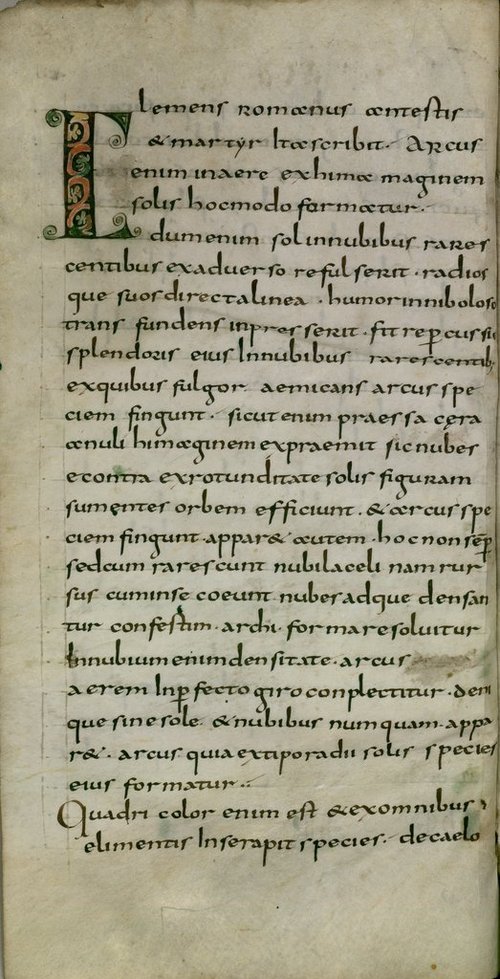 Clemens romanus antestis
& martyr ita scribit. Arcus
enim in aere ex himæ maginem
solis hocmodo formatur.
dum enim sol innubibus rares
centibus exaduerso refulserit. radios
que suos directa linea. humorinnibo loso
transfundens inpresserit. fit reꝑcussio
splendoris eius Innubibus rarescentib;
exquibus fulgor aemicans arcus spe
ciem fingunt. sicut enim praessa cęra
anuli himaginem expraemit sic nubes
econtra exrotunditate solis figuram
sumentes orbem efficiunt. & arcus spe
ciem fingunt. appar& autem. hoc non seꝑ
sed cum rarescunt nubila celi nam rur
sus cum inse coeunt nubes adque densan
tur confestim. archi. forma resoluitur
Innubium enim densitate. arcus
aerem Inꝑfecto giro conplectitur. deni
que sine sole & nubibus numquam appa
r&. arcus quia extiporadii solis species
eius formatur..
Quadri color enim est & exomnibus
elimentis Inse rapit species. de caelo